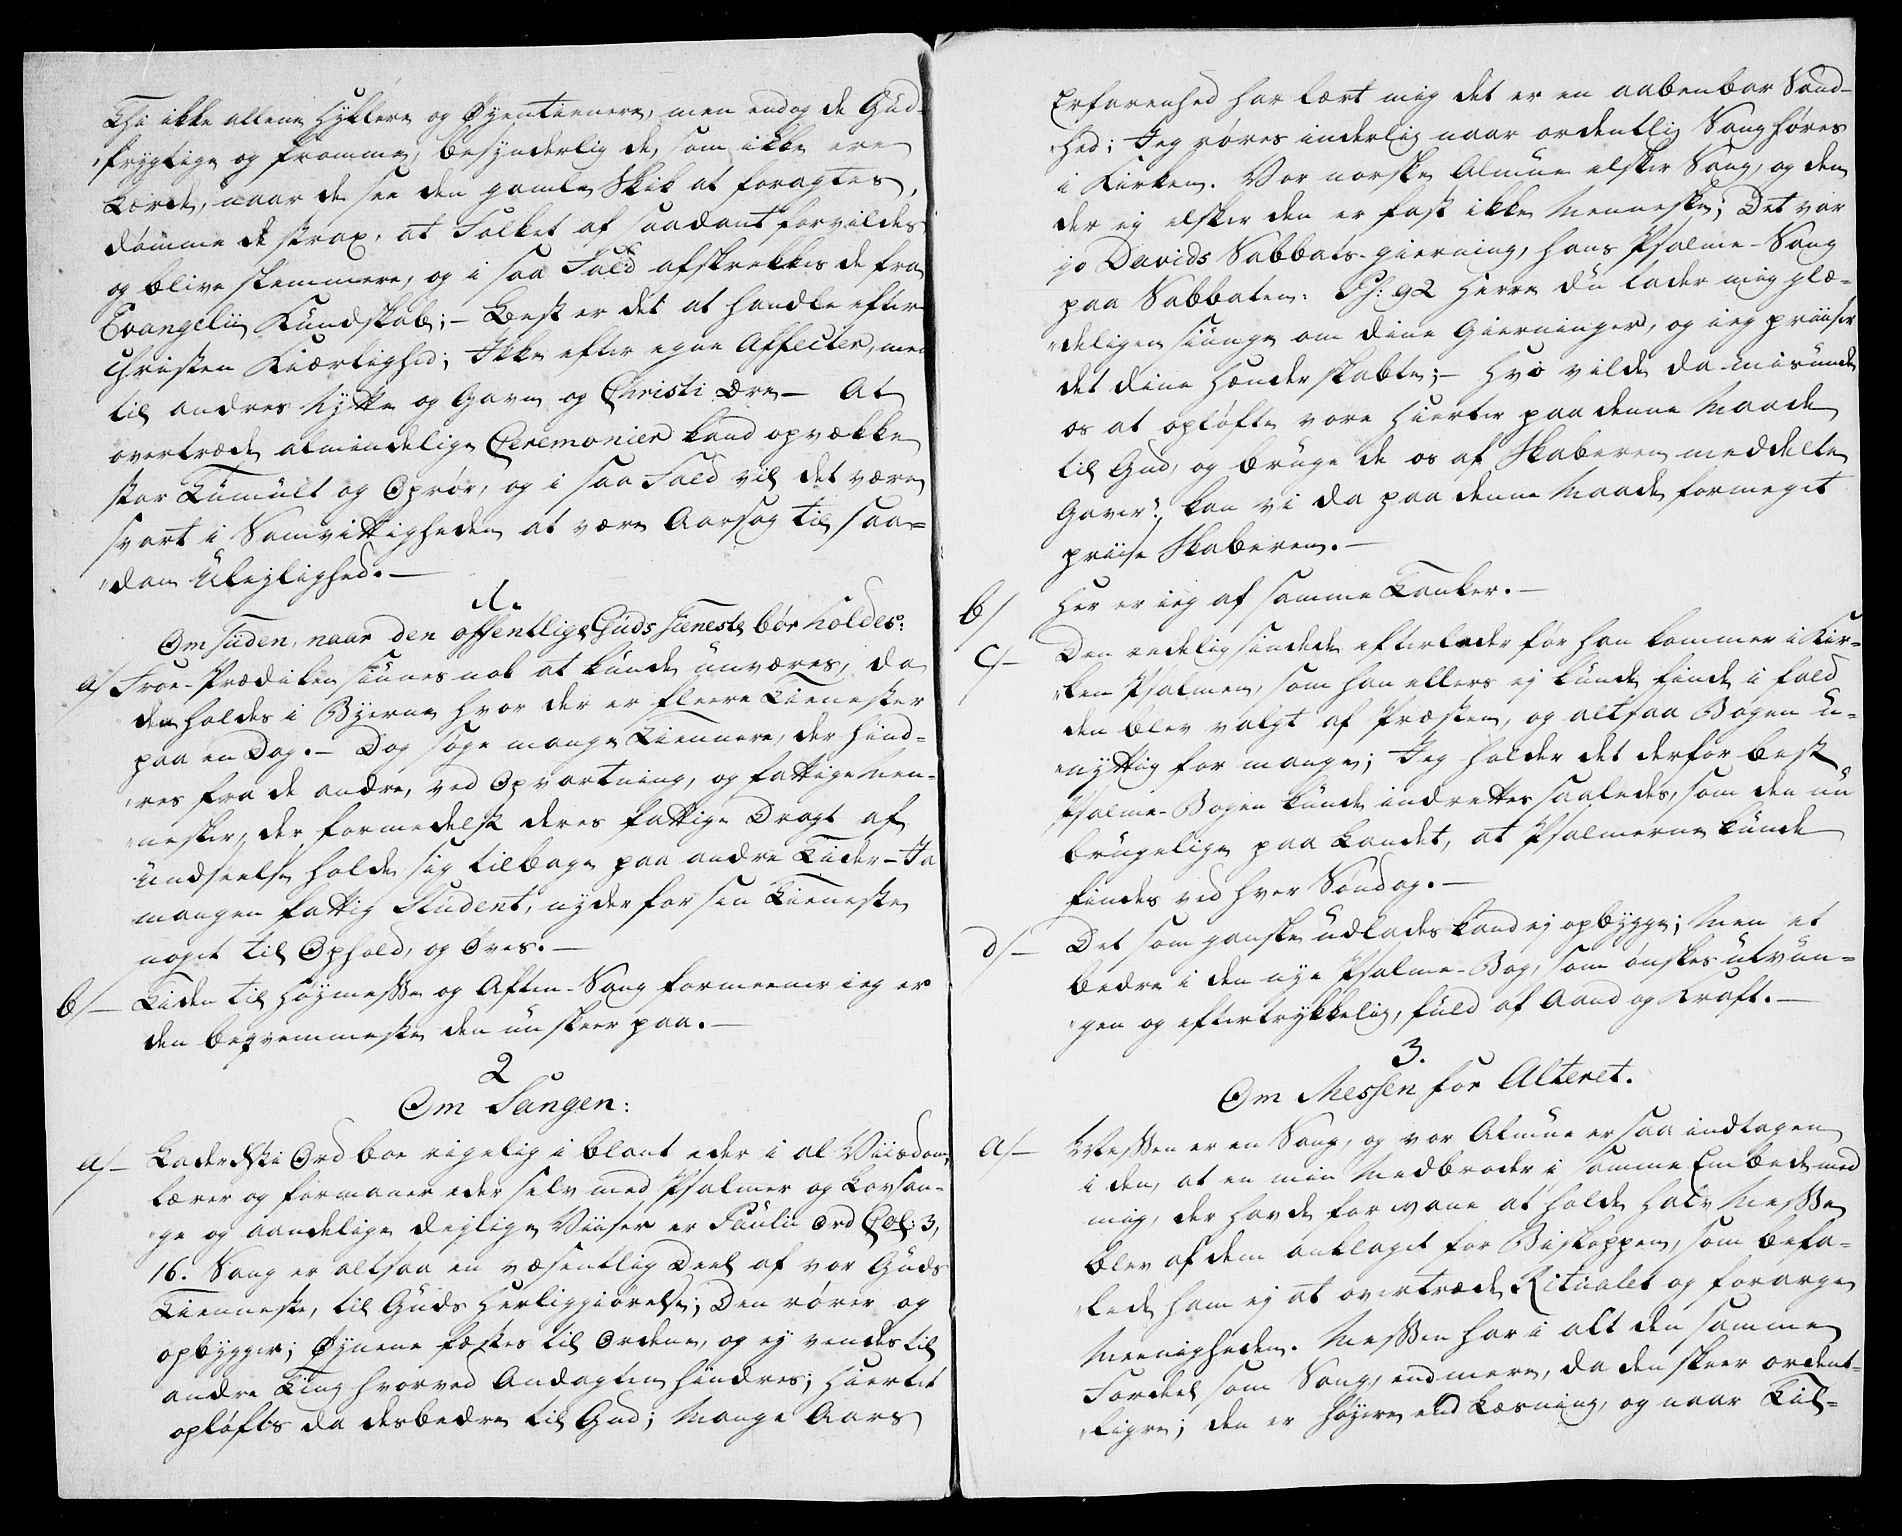 Thi ikke allene Hyklere og Øyentienere, men endog de Gud-
frygtige og fromme, besynderlig de, som ikke ere
Lærde, naar de see den gamle Skik at foragtes,
dømme de strax, at Folket af saadant forvildes
og blive slemmere, og i saa Fald afskrekkes de fra
Evangelii Kundskab; - Best er det at handle efter
Christen Kiærlighed; Ikke efter egne Affecter, men
til andres Nytte og Gavn og Christi Ære - At
overtræde almindelige Ceremonier kand opvække
stor Tumult og Oprør, og i saa Fald vil det være
svart i Samvittigheden at være Aarsag til saa-
dan Uleylighed. -
1.
Om Tiden, naar den offentlige Guds Tieneste bør holdes:
a/ Froe-Prædiken siunes nok at kunde unværes, da
den holdes i Byerne hvor der er fleere Tienester
paa en Dag. - Dog søge mange Tiennere, der hind-
res fra de andre, ved Opvartning, og fattige Men-
nesker, der formedelst deres fattige Dragt af
Undseelse holde sig tilbage paa andre Tider - Ja
mangen fattig Student, nyder for sin Tieneste
noget til Ophold, og Øves. -
b/ - Tiden til Høymesse og Aften-Sang formeener ieg er
den beqvemmeste den nu skeer paa. -
2
Om Sangen:
a/ - Lader Xsti Ord boe rigelig i blant eder i al Viisdom,
lærer og formaner eder selv med Psalmer og Lovsan-
ge og aandelige deylige Viiser er Pauli Ord Col: 3,
16. Sang er altsaa en væsentlig Deel af vor Guds
Tienneste, til Guds Herliggiørelse; Den rører og
opbygger; Øynene fæstes til Ordene, og ej vendes til
andre Ting hvorved Andagten hindres; Hiertet
opløftes da desbedre til Gud; Mange Aars
Erfarenhed har lært mig det er en aabenbar Sand-
hed; Jeg røres inderlig naar ordentlig Sang høres
i Kirken. Vor norske Almue elsker Sang, og den
der ej elsker den er fast ikke Menneske; Det var
jo Davids Sabbats-gierning, hans Psalme-Sang
paa Sabbaten: Ps: 92 Herre du lader mig glæ-
deligen siunge om dine Gierninger, og ieg priiser
det dine Hænder skabte; - Hvo vilde da misunde
os at opløfte vore Hierter paa denne Maade
til Gud, og bruge de os af Skaberen meddelte
Gaver? kan vi da paa denne Maade formeget
priise Skaberen. -
b/ Her er ieg af samme Tanker. -
c/ - Den redelig sindede efterleder før han kommer i Kir-
ken Psalmen, som han ellers ej kunde finde i fald
den blev valgt af Præsten, og altsaa Bogen u-
nyttig for mange; Jeg holder det derfor best
Psalme-Bogen kunde indrettes saaledes, som den nu
brugelige paa Landet, at Psalmerne kunde
findes ved hver Søndag. -
d/ - Det som ganske udlades kand ej opbygge; Men et
bedre i den nye Psalme-Bog, som ønskes utvun-
gen og eftertrykkelig, fuld af Aand og Kraft. -
3.
Om Messen for Alteret.
a/ - Messen er en Sang, og vor Almue er saa indtagen
i den, at en min Medbroder i samme Embede med
mig, der havde for vane at holde halv Messe
blev af dem anklaget for Biskoppen, som befa-
lede ham ej at overtræde Ritualet og forarge
Meenigheden. Messen har i alt den samme
Fordeel som Sang, end mere, da den skeer ordent-
ligere; den er høyere end Læsning, og naar Til-